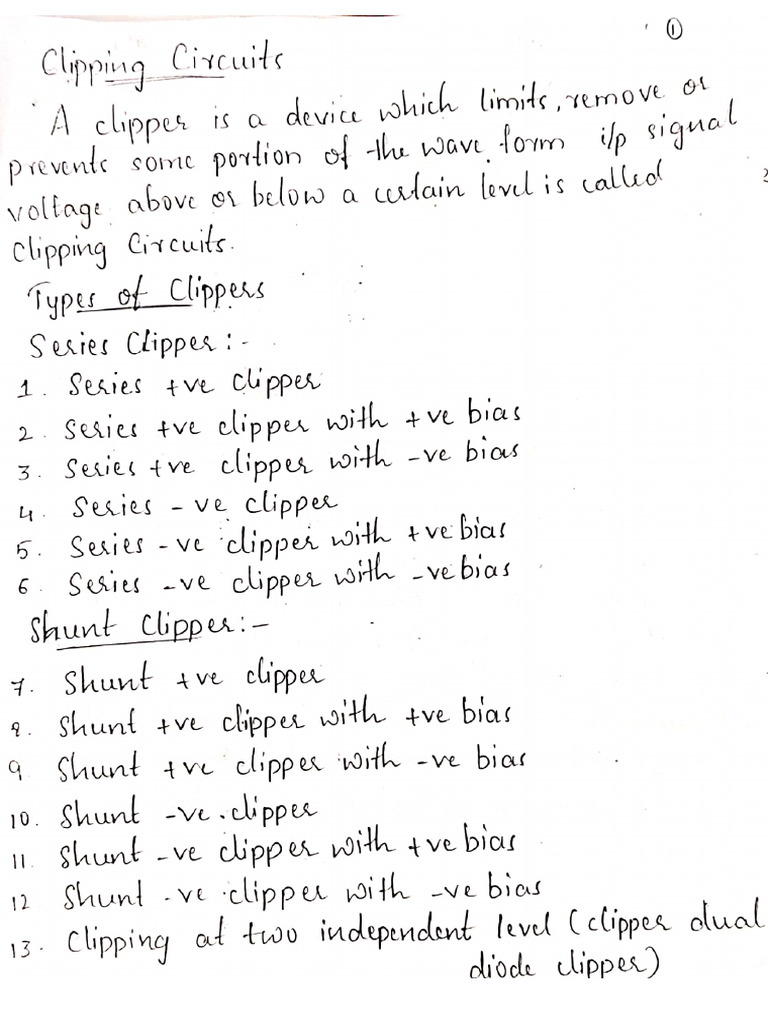 ①
Clipping Circuits
A clipper is a device which limits, remove or
prevents some portion of the wave form i/p signal
voltage above or below a certain level is called
Clipping Circuits.
Types of Clippers
Series Clipper:-
1. Series +ve clipper
2. Series +ve clipper with +ve bias
3. Series +ve clipper with -ve bias
4. Series -ve clipper
5. Series -ve clipper with +ve bias
6. Series -ve clipper with -ve bias
Shunt Clipper:-
7. Shunt +ve clipper
8. Shunt +ve clipper with +ve bias
9 Shunt +ve clipper with -ve bias
10. Shunt -ve clipper
11. Shunt -ve clipper with +ve bias
12 Shunt -ve clipper with -ve bias
13. Clipping at two independent level (clipper dual
diode clipper)